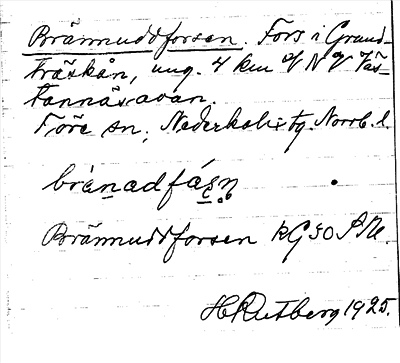 Brännuddforsen. Fors i Grund-
träskån, ung. 4 km N Väs-
tannäsavan.
Töre sn, Nederkalix tg. Norrb. l.
brä̀nadfásṇ
Brännuddforsen kG 50
H Rutberg 1925.